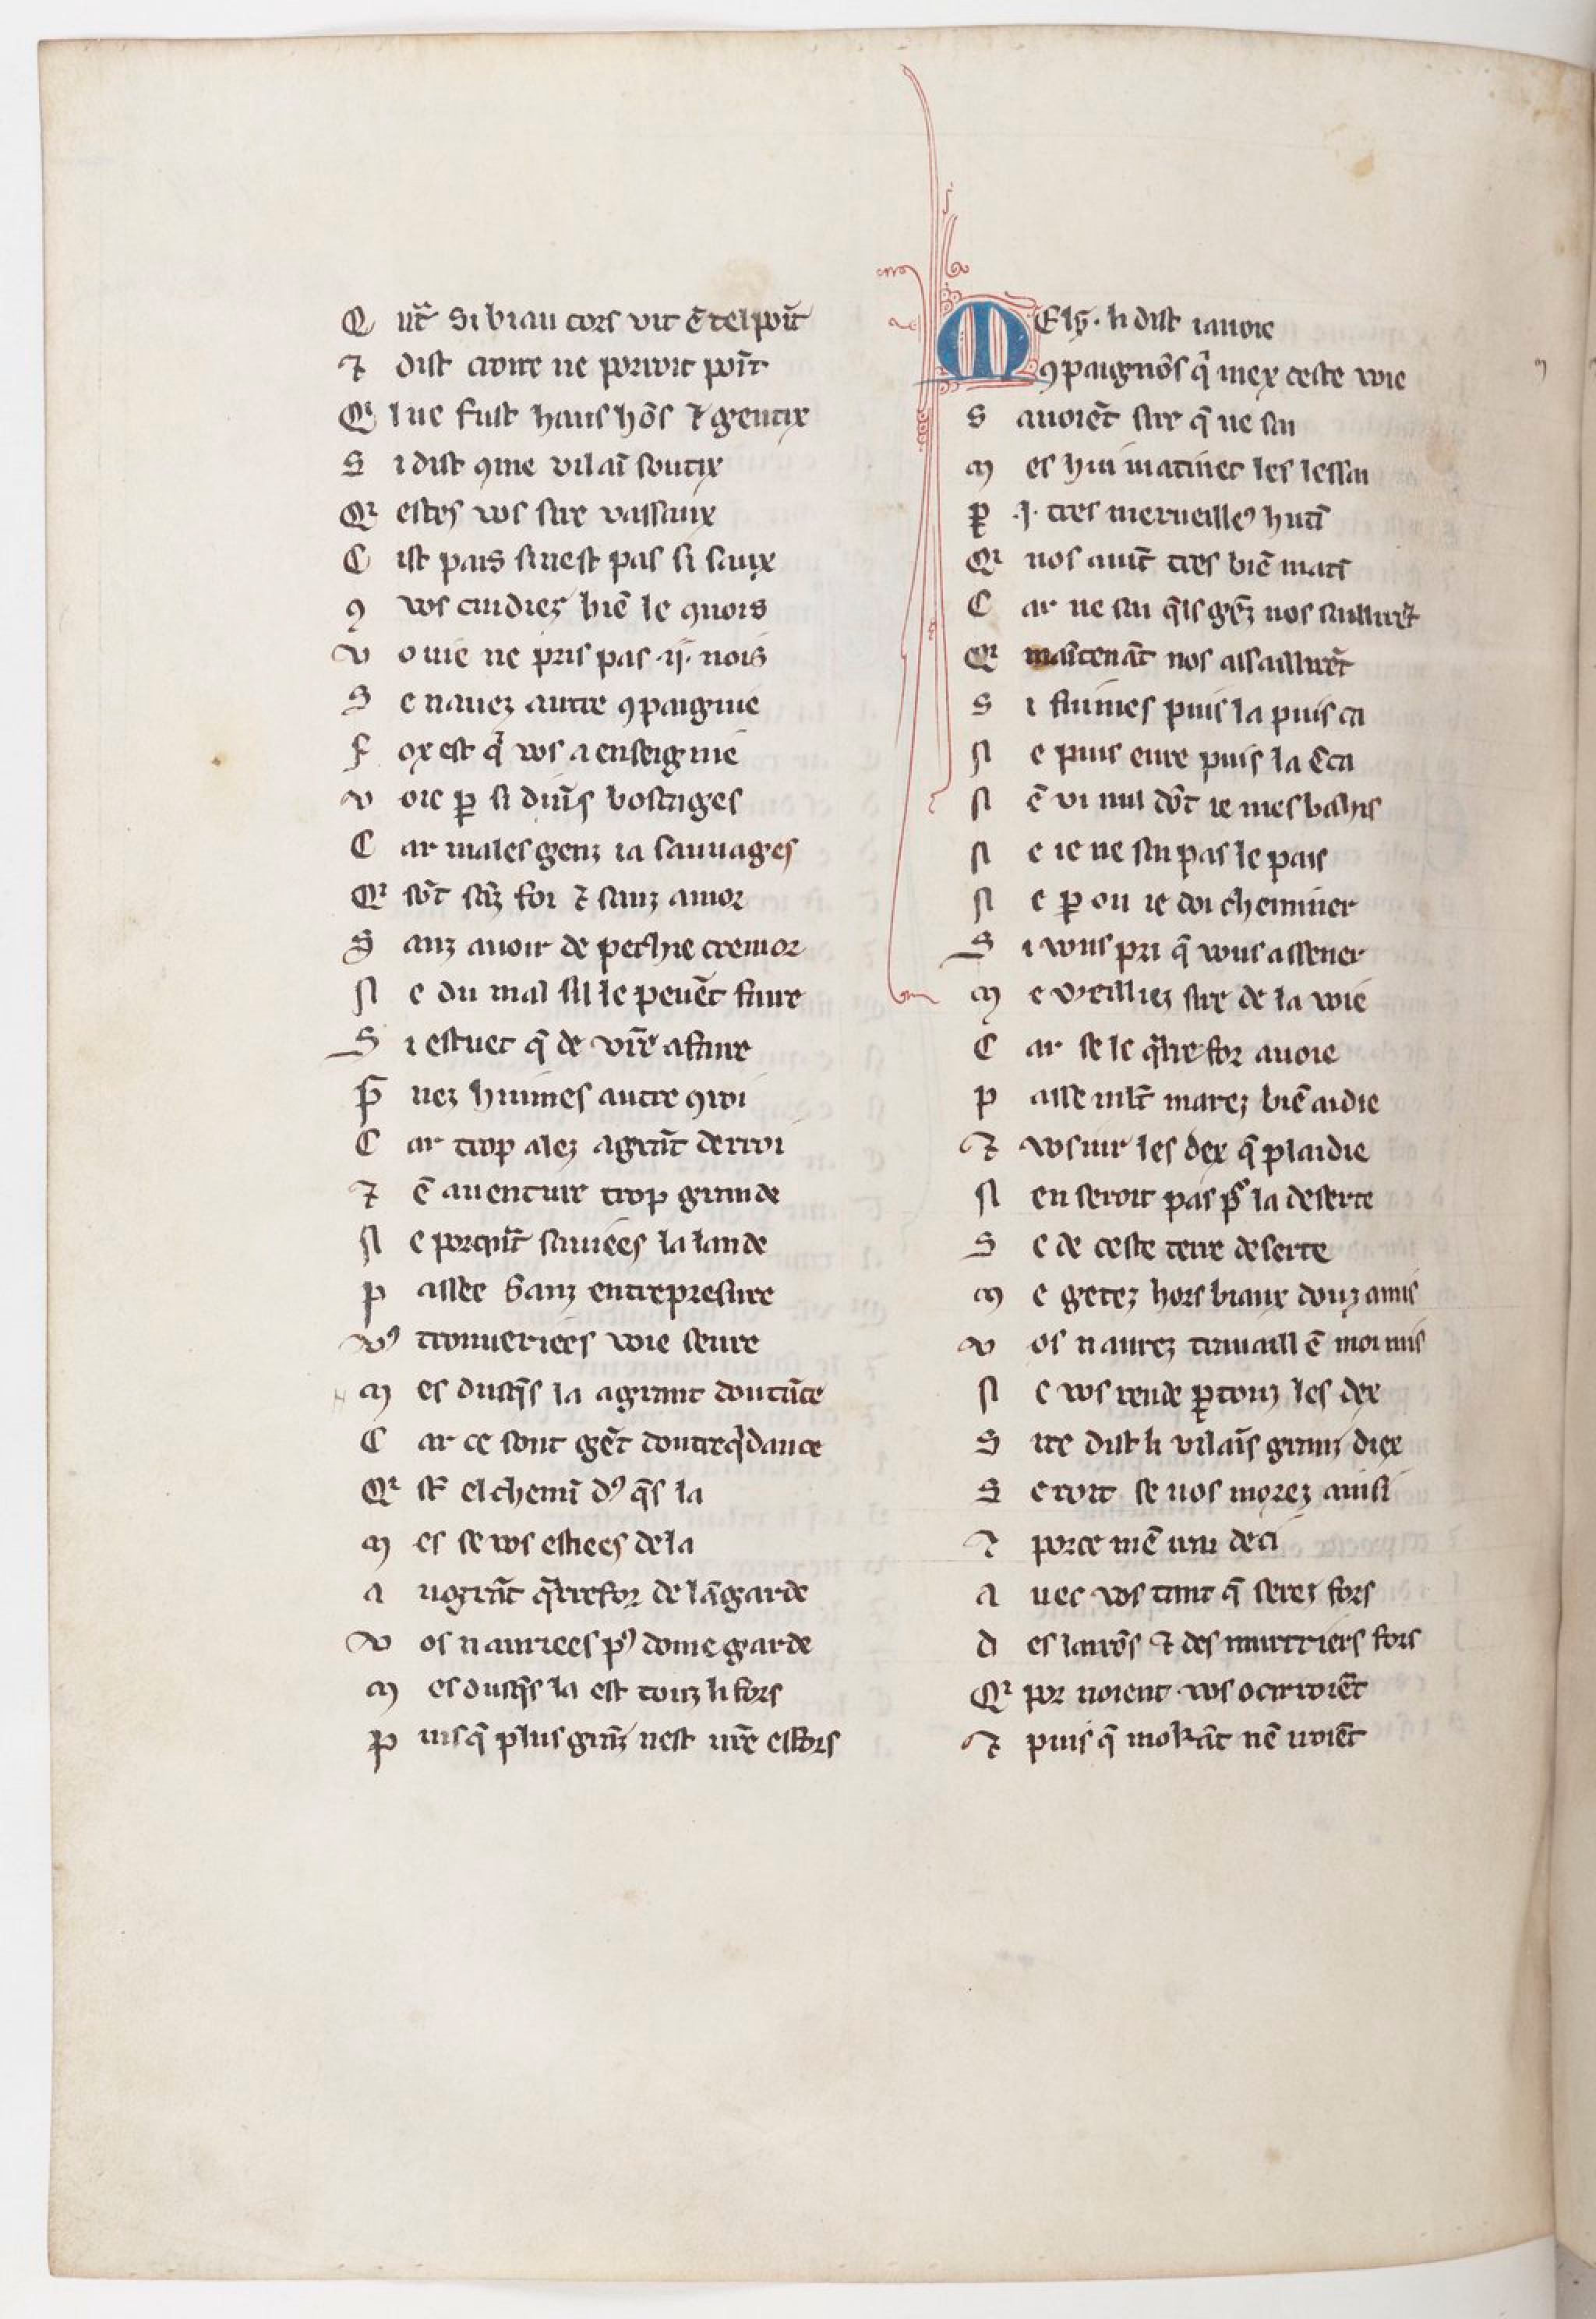 Q ut̃ si biau cors vit ẽ tel poĩt
⁊ dist croire ne porroit poĩt
Q'l ne fust haus hõs ⁊ gentix
S i dist ꝯme vilaĩ soutix
Q' estes vos sire vassaux
C ist pais si nest pas si saux
ꝯ vos cuidiez biẽ le ꝯnois
v o vie ne pris pas .ij. nois
S e navez autre ꝯpaignie
F ox est q̃ vos a enseignie
v oie ꝑ si divs̃ boscages
C ar males genz ia sauvages
Q' sõt sãz foi ⁊ sanz amor
S anz avoir de pechie cremor
N e du mal sil le pevẽt faire
S i estuet q̃ de vr̃e afaire
P̃ nez huimes autre ꝯroi
C ar trop alez a grãt derroi
⁊ ẽ aventure trop grande
N e porquãt saviees la lande
p assee sanz entrepresure
vꝰ trouveriees voie seure
m es dusq̃s la a grant doutãce
C ar ce sont gẽt doutreq̃dance
Q' st̃ el chemĩ dꝰ q̃s la
m es se vos estiees de la
a u grãt q̃rrefor de lãgarde
v os n auriees pꝰ dome garde
m es dusq̃s la est touz li fors
p uisq̃ plus grãz nest vr̃e esfors
M Elȝ. li dist iavoie
ꝯpaignõs q̃ miex ceste voie
S avoiẽt sire q̃ ne sai
m es hui matinet les lessai
ꝑ .j. tres merveilleꝰ hutĩ
Q' nos avĩt tres biẽ matĩ
C ar ne sai q̃ls gẽz nos saillirẽt
Q' maĩtenãt nos assaillirẽt
S i fuimes puis la puis ca
N e puis eure puis la ẽca
N ẽ vi nul dõt ie mesbahis
N e ie ne sai pas le pais
N e ꝑ ou ie doi cheminer
S i vous pri q̃ vous assener
m e veilliez sire de la voie
C ar se le q̃rrefor avoie
p asse mlt̃ mavrez biẽ aidie
⁊ vos vir les dex q̃ plaidie
N en seroit pas p̃s la deserte
S e de ceste terre deserte
m e getez hors biaux douz amis
v os n aurez travaill ẽ moi mis
N e vos rende ꝑ touz les dex
S ire dist li vilaĩs granz diex
S eroit se vos morez ainsi
⁊ por ce mẽ irai de ci
a vec vos tant q̃ serez fors
d es larrõs ⁊ des murtriers fors
Q' por noient vos ocirroiẽt
⁊ puis q̃ moꝉt̃ãt nẽ voiẽt